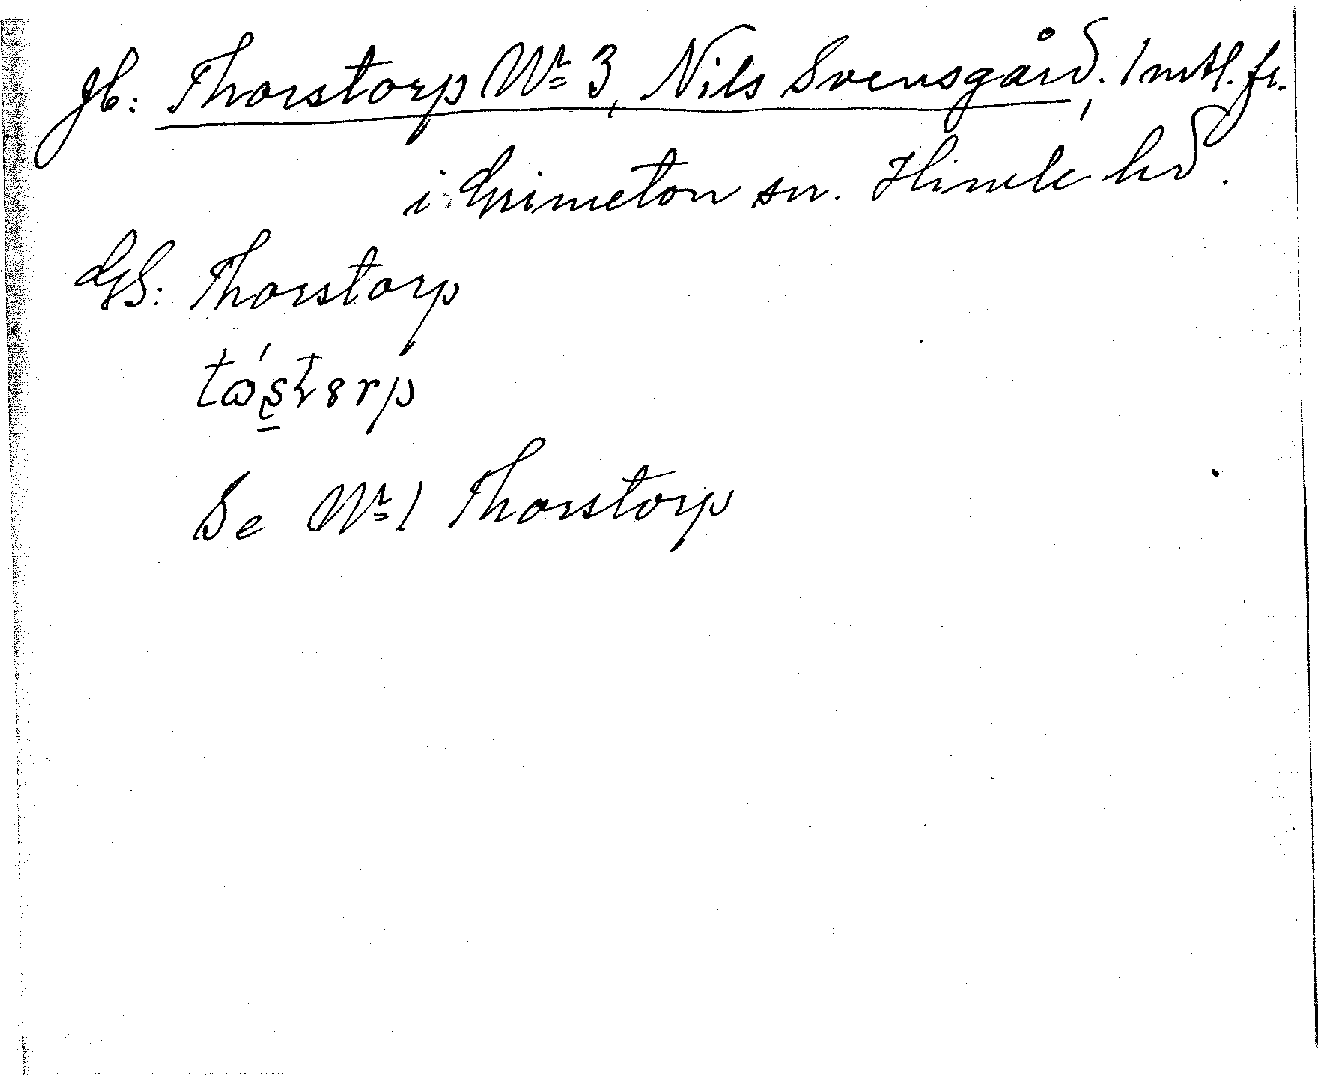 Jb: Thorstorp Nr 3, Nils Svensgård, 1 mtl. fr.
i Grimeton sn. Himle hd.
GS: Thorstorp
Se Nr 1 Thorstorp